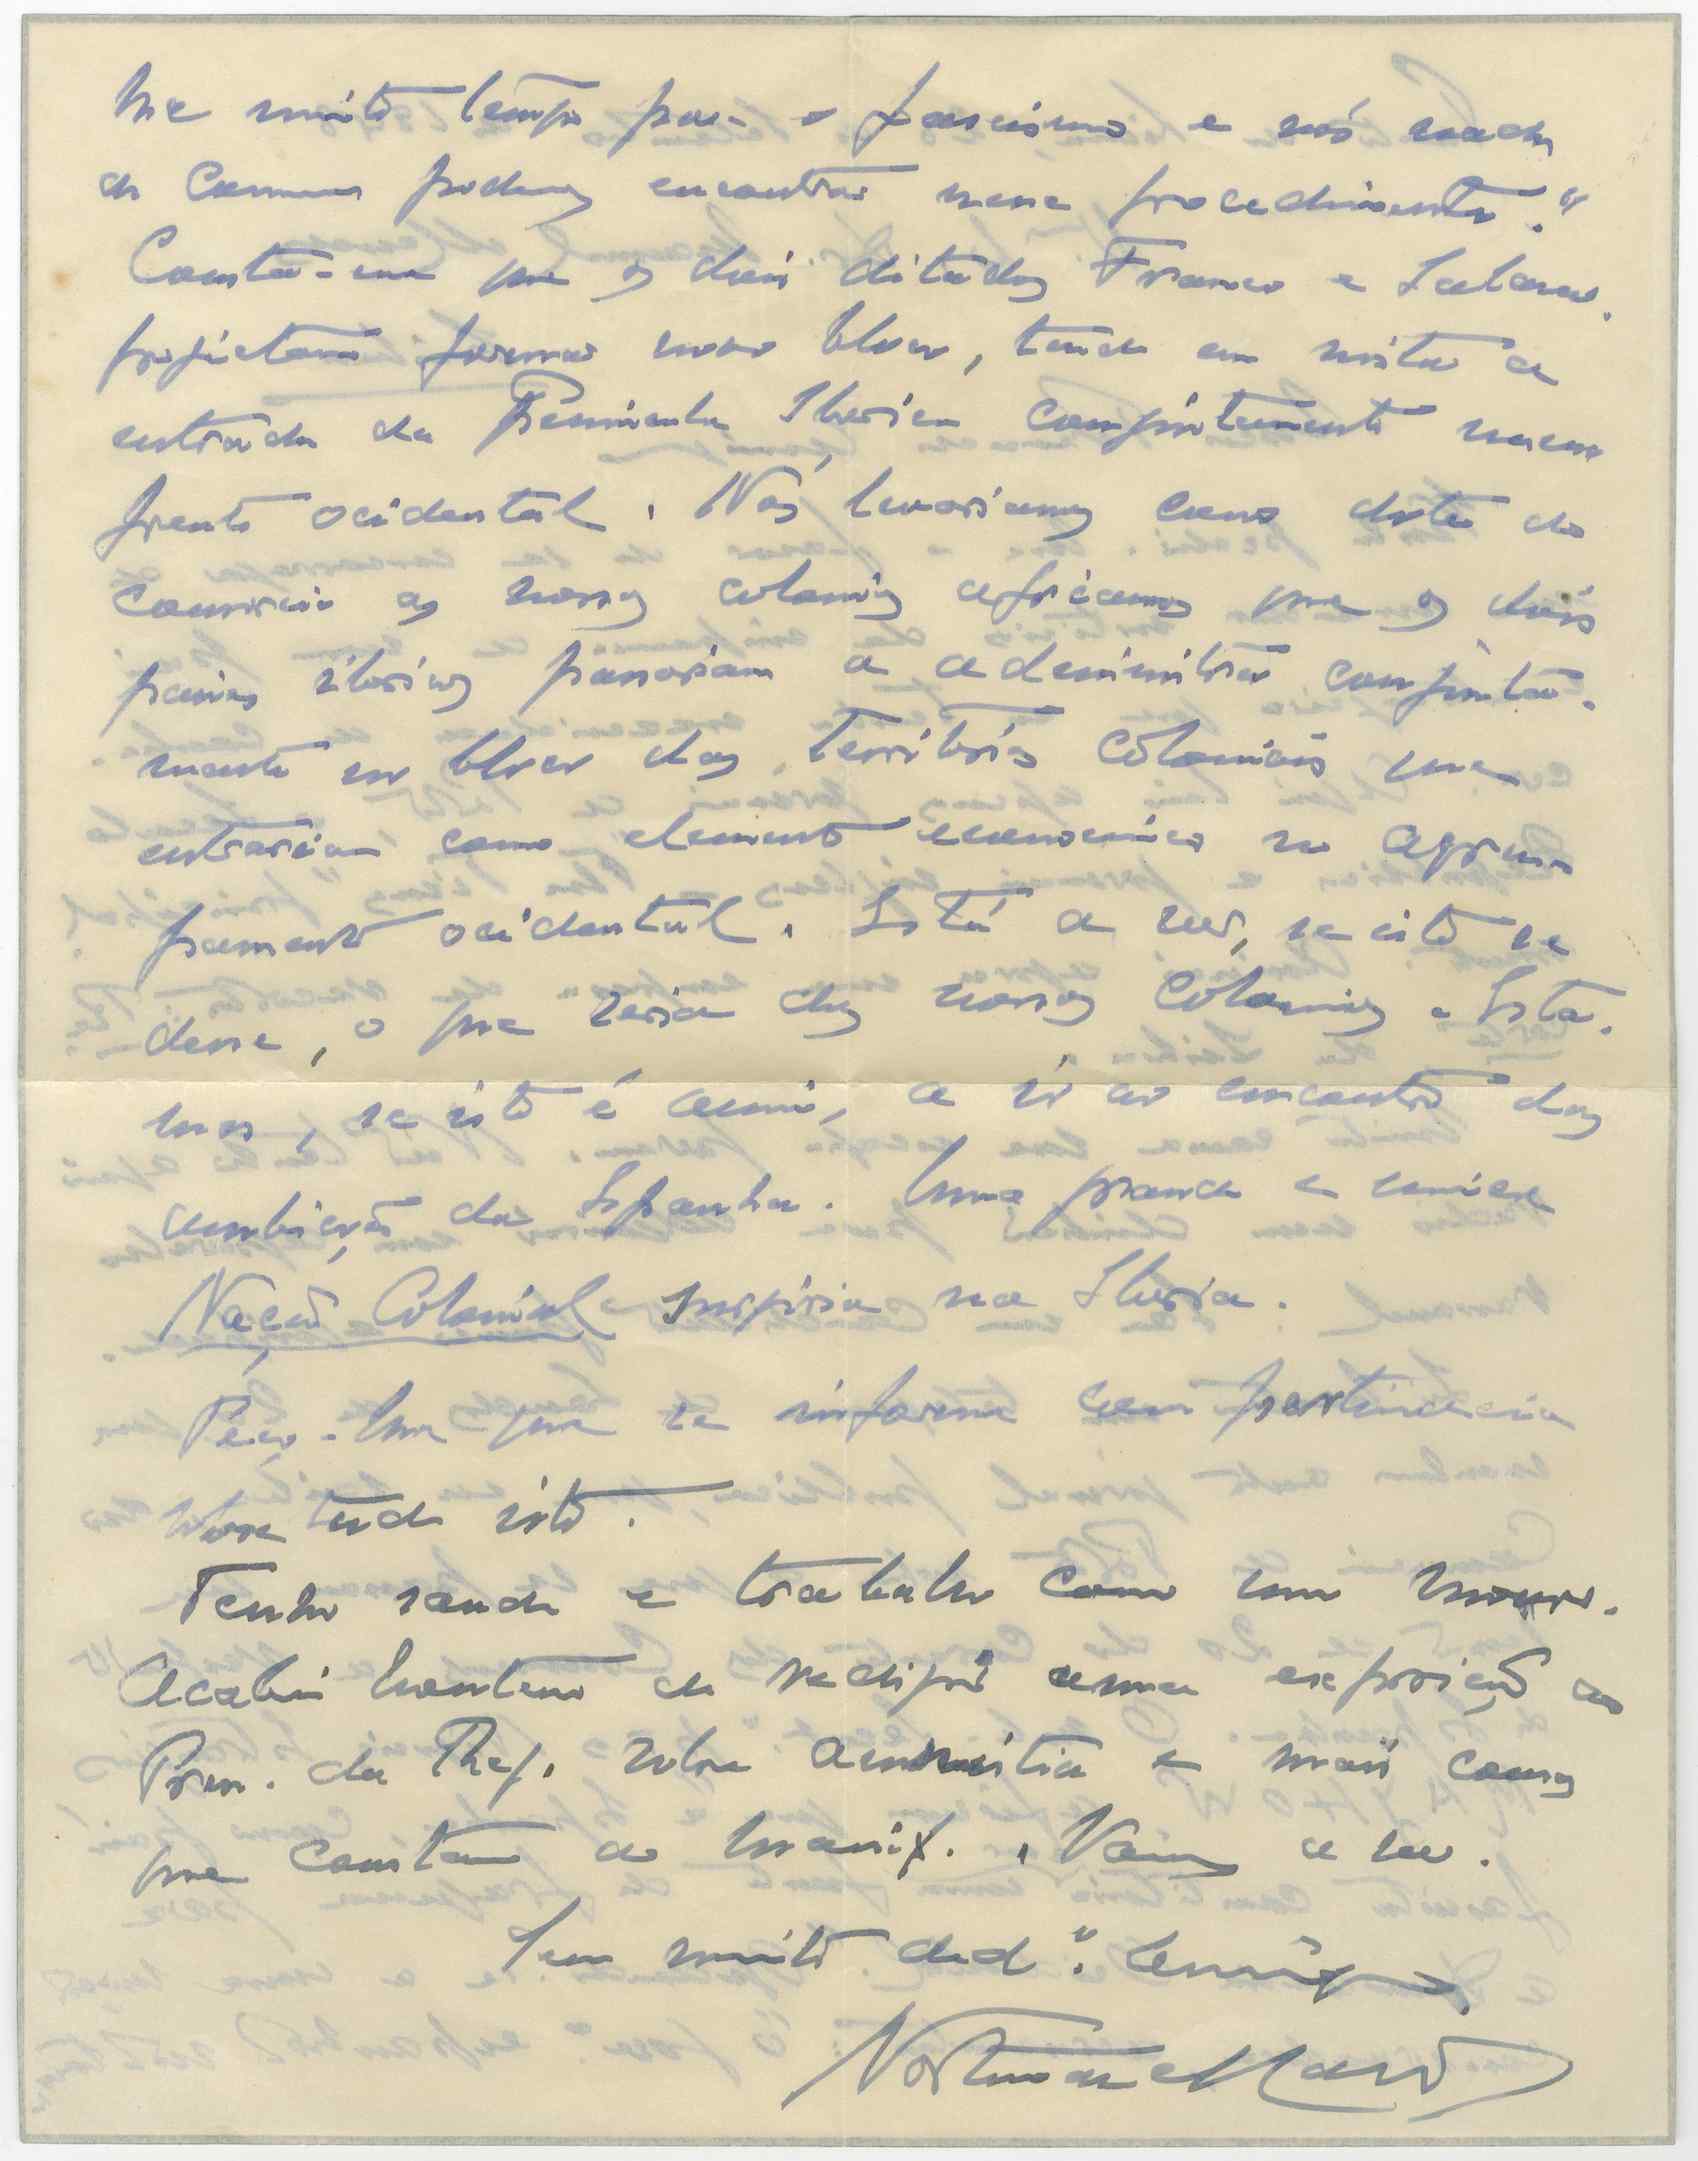 lhe muito tempo para o fascismo e nós nada
de comum podemos encontrar nesse procedimento."
Consta-me que os dois ditadores Franco e Salazar
projectam formar novo bloco, tendo em vista a
entrada da Peninsula Iberica conjuntamente numa
frente ocidental. Nós levariamos como dote do
consorcio as nossas colonias africanas que os dois
paises ibericos passariam a administrar conjunta-
mente no bloco dos territórios coloniais que
entrariam como elemento economico no agru-
pamento ocidental. Está a ver, se isto se
desse, o que seria das nossas colonias. Esta-
mos, se isto é assim, a ir ao encontro das
ambições da Espanha. Uma grande e unica
Nação Colonial surgiria na Iberia.
Peço-lhe que se informe com pertinacia
sobre tudo isto.
Tenho saude e trabalho como um mouro.
Acabei hontem de redigir uma exposição ao
Pres. da Rep. sobre amnistia e mais cousas
que constam do manif. . Vamos a ver.
Seu muito ded.º amigo,
Norton de Mattos